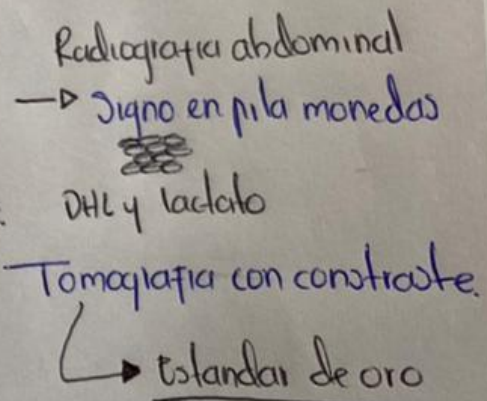 Radiografia abdominal
→ Signo en pila monedas
DHL y lactato
Tomografia con constraste.
→ Estandar de oro